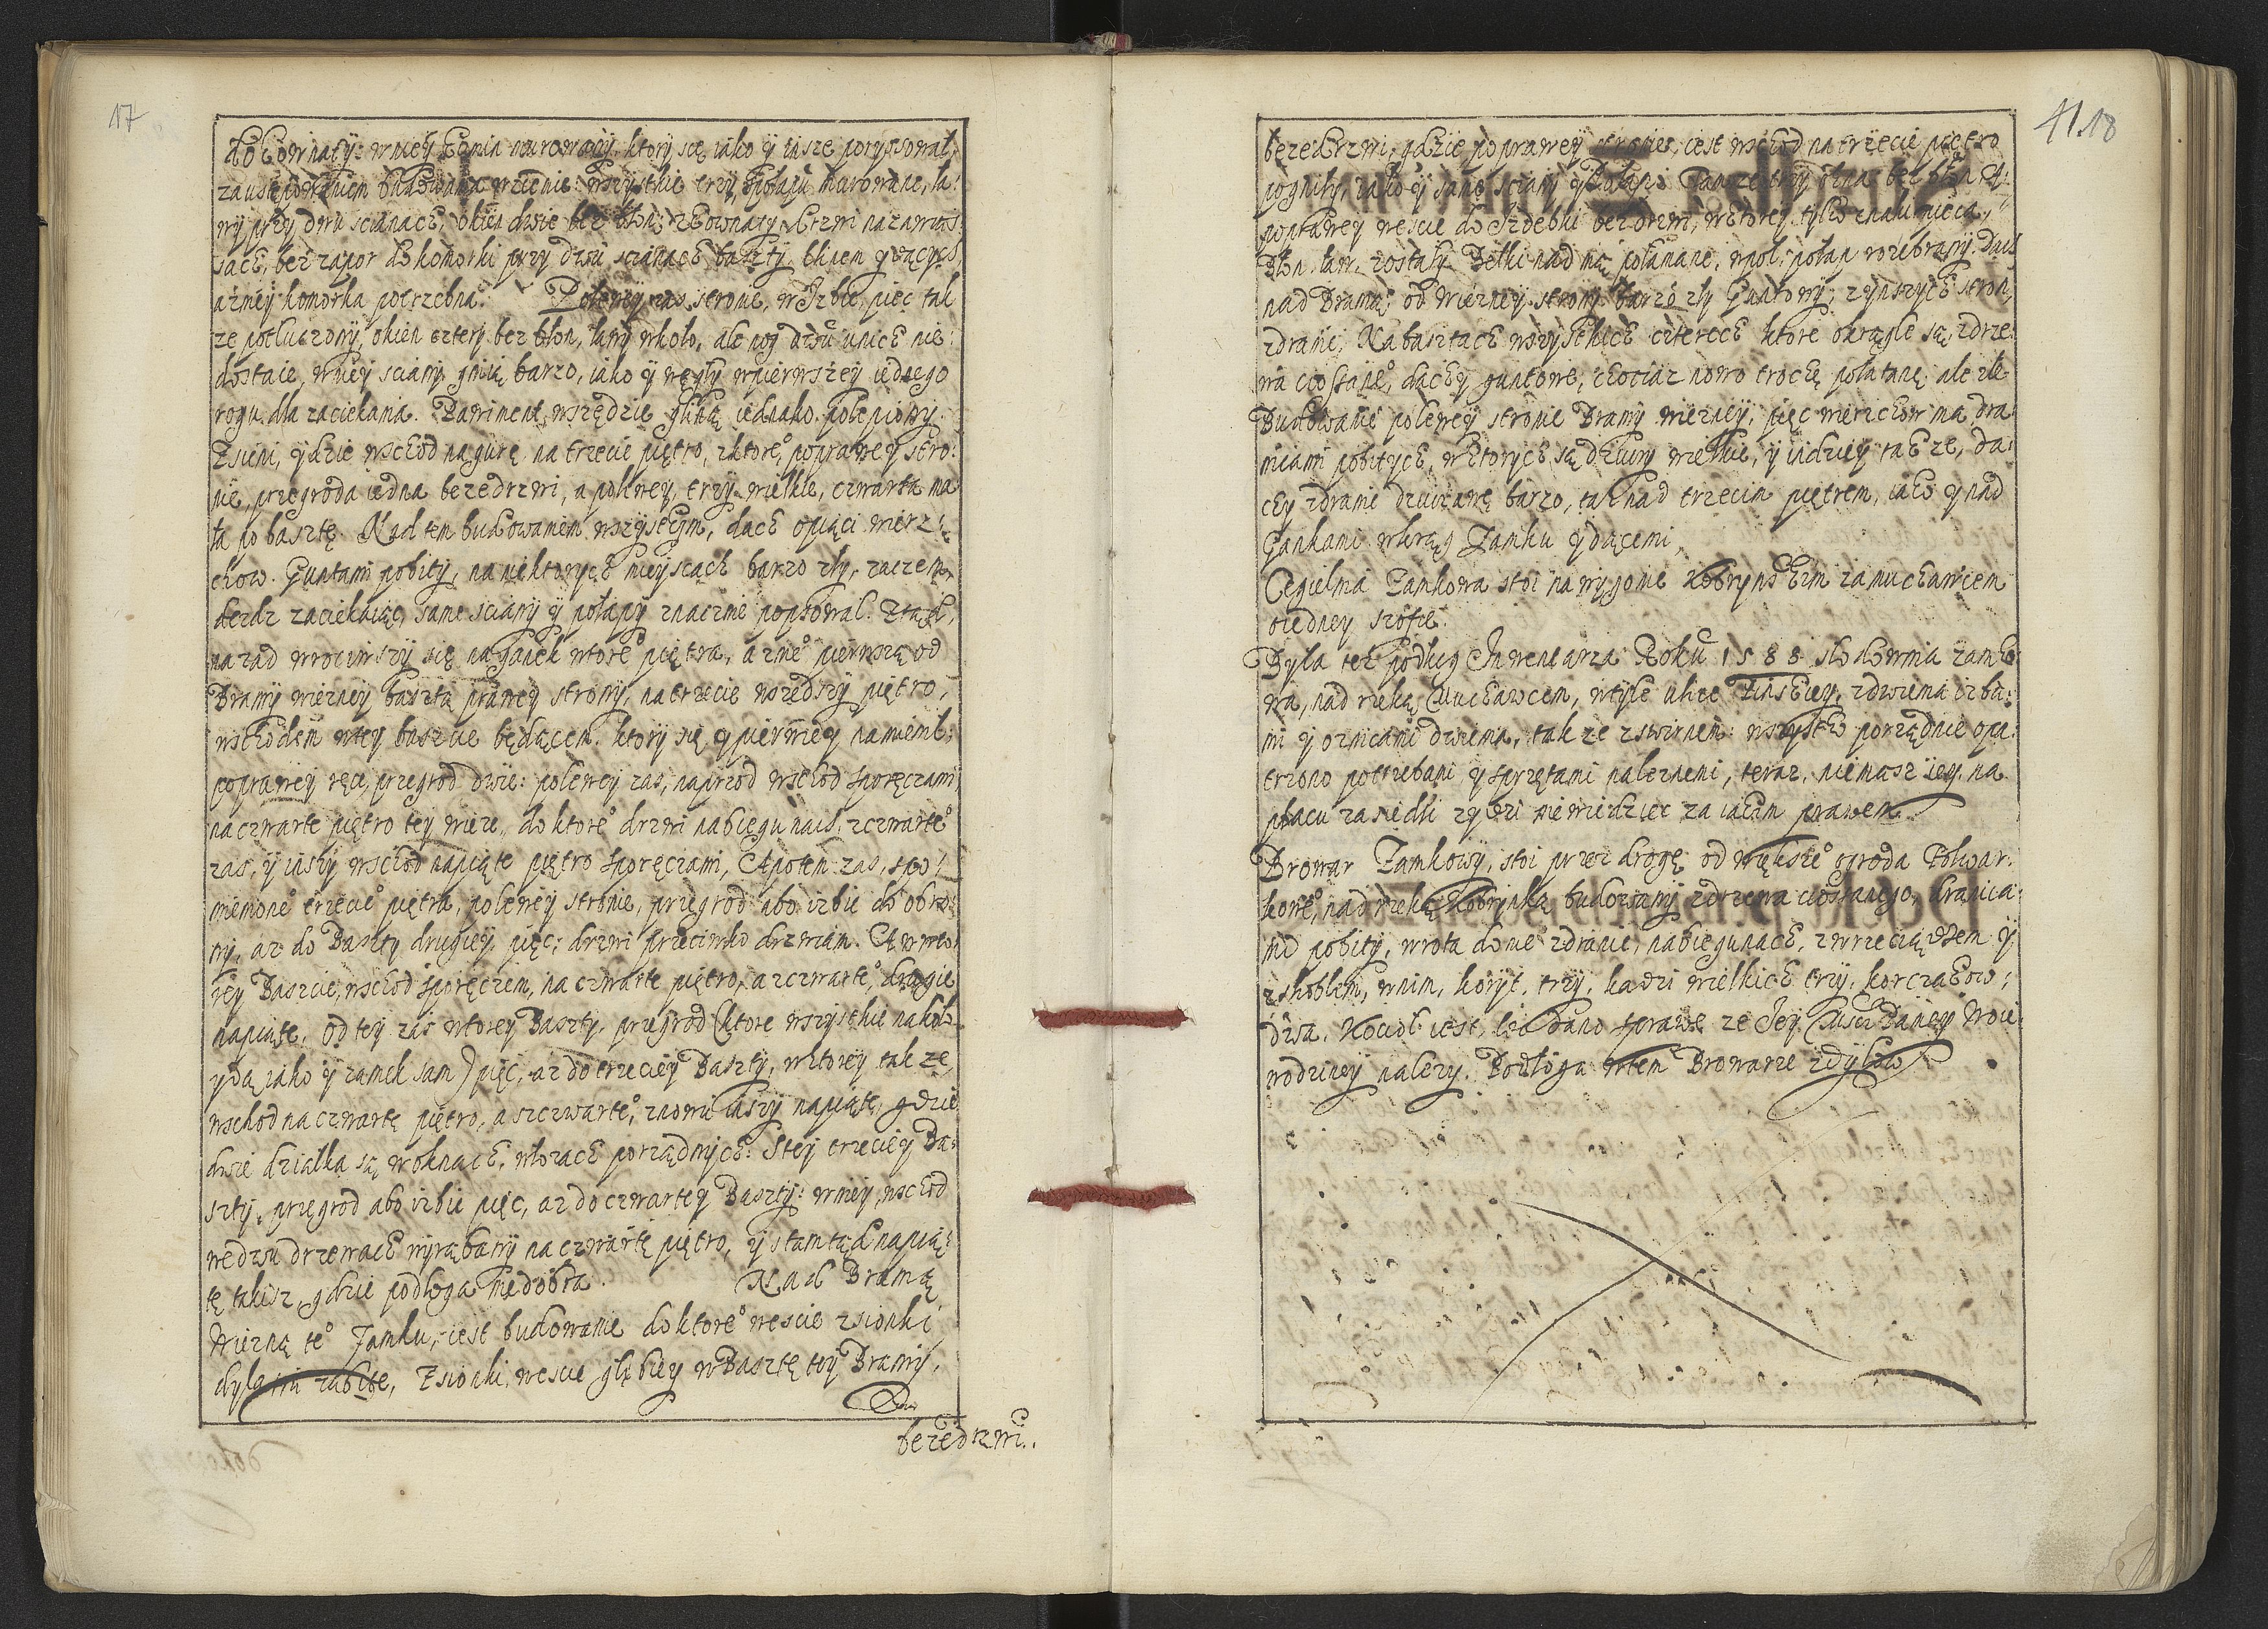 17
do Commaty: w niey komin murowany, ktory się iako y insze porysował,
za ustępowaniem w ziemię: wszystkie trzy, społapu murowane, ła:
wy przy dwu scianach, okien dwie bez błon, drzwi na zawias
sach, bez zapor do komorki przy dwu scianach baszty,
aż niey komorka potrzebna. Polewey zas stronie, w Izbie piec tak
ze potłuczony, okien cztery bez błon, ławy wkoło, ale nog dwu unich nie:
dostaie, w niey sciany gniią barzo, iako y węgły w pierwszey iednego
rogu dla zaciekania. Pawiment wszędzie gliną iednako polepiony.
Z sieni, ydzie wschod na gurę na trzecie piętro, z ktore° poprawey stro:
nie, przegroda iedna bezedrzwi, a polewey, trzy wielkie, czwarta ma
ła po basztę. Nad tem budowaniem wszystkim, dach opiąci wierz:
chow. Guntami pobity, na niektorych mieyscach barzo zły, zaczem
deżdż zaciekaiąc, same sciany y połapy znacznie popsował. Ztąd,
nazad wrociwszy się na ganek wtore° piętra, a z nie° pierwszą od
Bramy wiezney baszta prawey strony, na trzecie wszedszy piętro,
wschodem wtey baszcie będącem, ktory się y pierwiey namienił:
poprawey ręce, przegrod dwie: polewey zas, naprzod wschod sporęczami,
na czwarte piętro tey wieze, do ktore° drzwi na biegunach, z czwarte°
zas, y inszy wschod na piąte piętro sporęczami, A potem zas, spo/
mienione° trzecie° piętra, polewey stronie, przegrod abo izbic do obro:
ny, aż do Baszty drugiey pięc: drzwi przeciwko drzwiam. A w wto:
rey Baszcie, wschod sporęczem, na czwarte piętro, a z czwarte°, drugie
na piąte. od tey zas wtorey Baszty, przegrod (ktore wszystkie nakoło
ydą iako y zamek sam) pięc, aż do trzeciey Baszty, w ktorey tak ze
wschod na czwarte piętro, a z czwarte°, znowu inszy na piąte, gdzie
dwie działka są w oknach, w łożach porządnych. Z tey trzeciey Ba:
szty, przegrod abo izbic pięc, aż do czwartey Baszty: w niey, wschod
we dwu drzewach wyrąbany na czwarte piętro, y stamtąd na pią:
te takisz, gdzie podłoga niedobra. Nad Bramą
Wiezną te° Zamku, iest budowanie do ktore° wescie z sionki
dylami zabite, Z sionki, wescie głębiey w Basztę tey Bramy,
bezedrzwi..
41.18
bezedrzwi, gdzie poprawey stronie, iest wschod na trzecie piętro
pogniły, iako y same sciany y Połapi. Tamże trzy okna bez błon. A:
poprawey wescie do Izdebki bez drzwi, w ktorey tylko znaki pieca,
Błon, ław, zostały. Belki nad nią połamane, w poł: połap rozebrany. Dach
nad Bramą, od wiezney strony barzo zły Guntowy, z ynszych stron,
zdranic, Na basztach wszystkich czterech ktore okrągłe są z drze:
wa ciosane°, dachy guntowe, chociaz nowo trochę połatane, ale źle.
Budowanie polewey stronie Bramy wiezney, pięc wierzchow ma dra:
nicami pobitych, w ktorych są dziury wielkie, y indziey tak ze, da:
chy zdranic dziurawe barzo, tak nad trzecim piętrem, iako y nad
Gankami wkrąg Zamku ydącemi,
Cegielnia Zamkowa stoi na wygonie Kobrynskim za Muchawcem
oiedney szopie.
Była też podług Inwentarza Roku 1588 słodownia zamko:
wa, nad rzeką Muchawcem, wtyle ulice Pinskiey, z dwiema izba:
mi y oznicami dwiema, tak ze z swirnem: wszystko porządnie opa:
trzono potrzebami y sprzętami należnemi, teraz, niemasz iey. na
placu zasiedli zydzi niewiedziec za iakim prawem.
Browar Zamkowy, stoi przez drogę od większe° ogroda Folwar:
kowe°, nad rzeką Kobrynką budowany z drzewa ciosanego, dranica:
mi pobity, wrota do nie° zdranic, na biegunach, z wrzeciądzem y
z skoblem, w nim, koryt, trzy, kadzi wielkich trzy, korczakow,
dwa. Kocioł iest, lecz dano sprawę ze Jey Mości Paniey Woie:
wodziney należy. Podłoga w tem Browarze z dylow